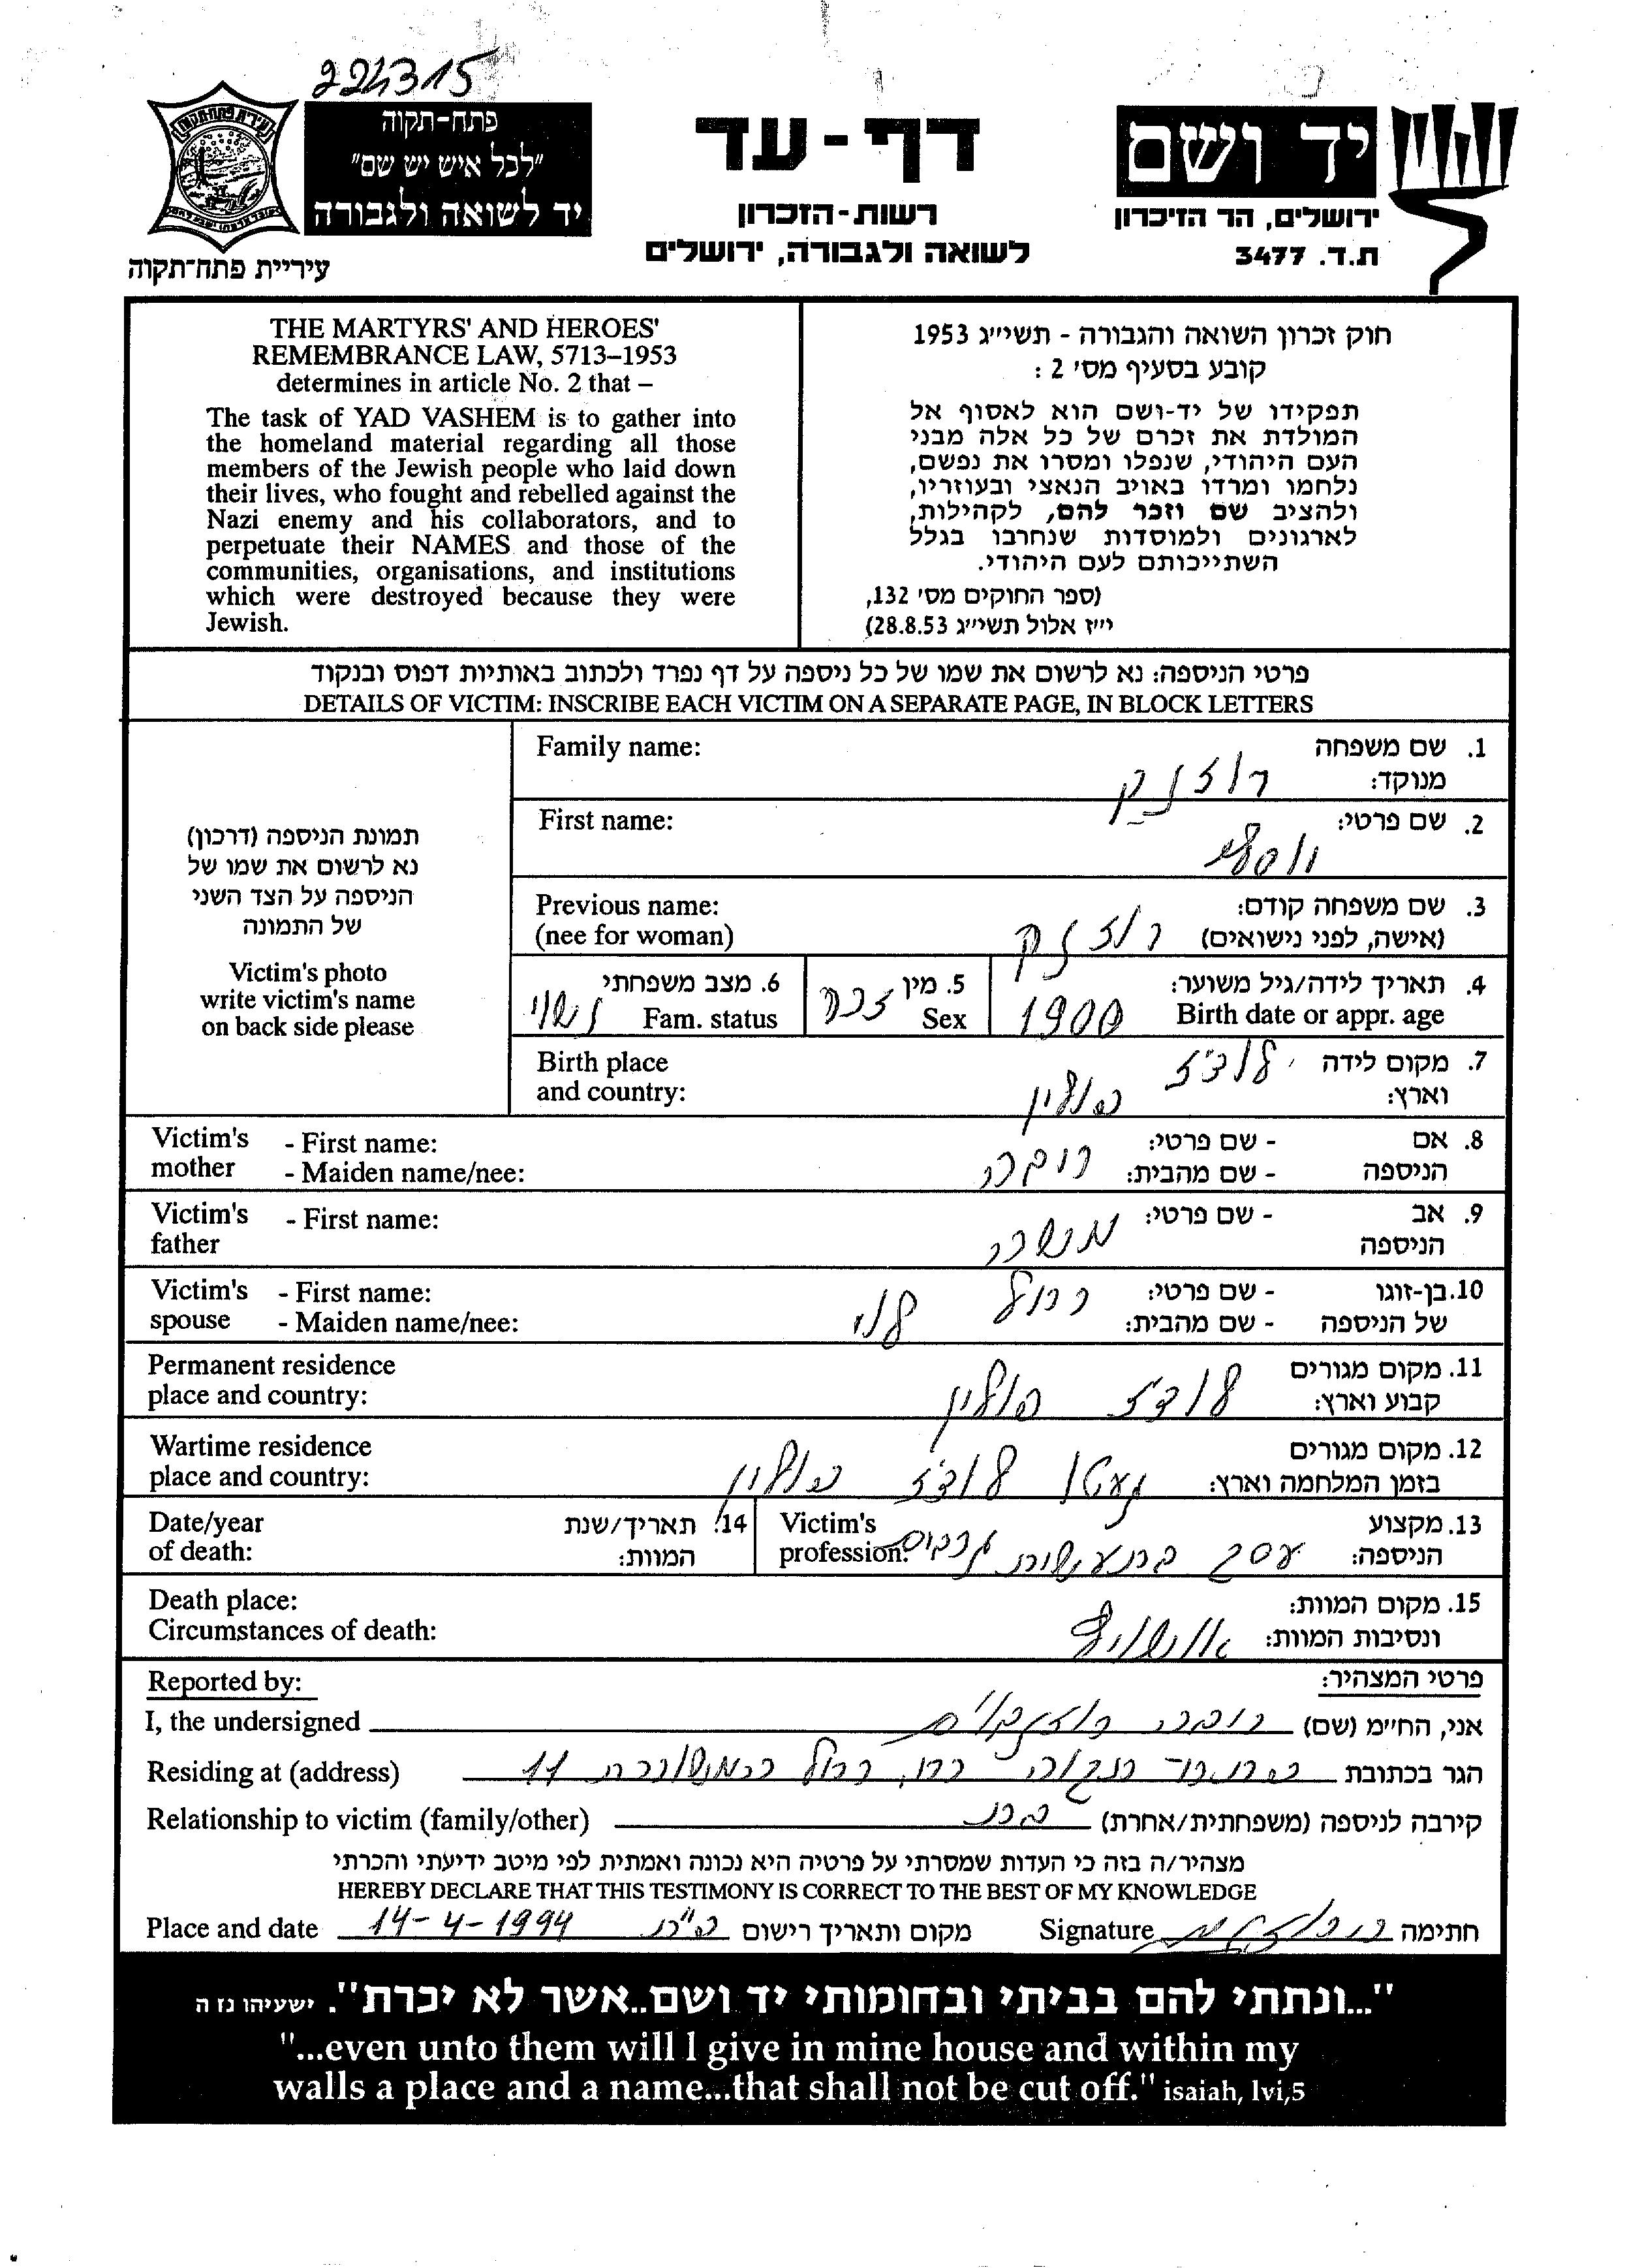 224315
פתח-תקוה
"לכל איש יש שם"
יד לשואה ולגבורה
עיריית פתח-תקוה
דף-עד
רשות-הזכרון
לשואה ולגבורה, ירושלים
יד ושם
ירושלים, הר הזיכרון
ת.ד. 3477
THE MARTYRS' AND HEROES'
REMEMBRANCE LAW, 5713–1953
determines in article No. 2 that –
The task of YAD VASHEM is to gather into
the homeland material regarding all those
members of the Jewish people who laid down
their lives, who fought and rebelled against the
Nazi enemy and his collaborators, and to
perpetuate their NAMES and those of the
communities, organisations, and institutions
which were destroyed because they were
Jewish.
חוק זכרון השואה והגבורה - תשי"ג 1953
קובע בסעיף מס' 2 :
תפקידו של יד-ושם הוא לאסוף אל
המולדת את זכרם של כל אלה מבני
העם היהודי, שנפלו ומסרו את נפשם,
נלחמו ומרדו באויב הנאצי ובעוזריו,
ולהציב שם וזכר להם, לקהילות,
לארגונים ולמוסדות שנחרבו בגלל
השתייכותם לעם היהודי.
(ספר החוקים מס' 132,
י"ז אלול תשי"ג 28.8.53)
פרטי הניספה: נא לרשום את שמו של כל ניספה על דף נפרד ולכתוב באותיות דפוס ובנקוד
DETAILS OF VICTIM: INSCRIBE EACH VICTIM ON A SEPARATE PAGE, IN BLOCK LETTERS
תמונת הניספה (דרכון)
נא לרשום את שמו של
הניספה על הצד השני
של התמונה
Victim's photo
write victim's name
on back side please
Family name: 1. שם משפחה
מנוקד:
First name: 2. שם פרטי:
Previous name: 3. שם משפחה קודם:
(nee for woman) (אישה, לפני נישואים)
4. תאריך לידה/גיל משוער:
Birth date or appr. age 1900
5. מין זכר
Sex
6. מצב משפחתי
Fam. status נשוי
Birth place 7. מקום לידה לודז'
and country: וארץ: פולין
Victim's - First name: 8. אם - שם פרטי:
mother - Maiden name/nee: הניספה - שם מהבית: רבקה
Victim's - First name: 9. אב - שם פרטי:
father הניספה מנשה
Victim's - First name: 10. בן-זוגו - שם פרטי: רחל
spouse - Maiden name/nee: של הניספה - שם מהבית: לוי
Permanent residence 11. מקום מגורים
place and country: קבוע וארץ: לודז' פולין
Wartime residence 12. מקום מגורים
place and country: בזמן המלחמה וארץ: געטו לודז' פולין
Date/year 14. תאריך/שנת
of death: המוות:
Victim's 13. מקצוע
profession: הניספה: עסק בתעשית גרבים
Death place: 15. מקום המוות:
Circumstances of death: ונסיבות המוות: אושויץ
Reported by: פרטי המצהיר:
I, the undersigned אני, החי"מ (שם) רבקה
Residing at (address) הגר בכתובת פתח תקוה רח, רחל המשוררת 11
Relationship to victim (family/other) קירבה לניספה (משפחתית/אחרת) בת
מצהיר/ה בזה כי העדות שמסרתי על פרטיה היא נכונה ואמתית לפי מיטב ידיעתי והכרתי
HEREBY DECLARE THAT THIS TESTIMONY IS CORRECT TO THE BEST OF MY KNOWLEDGE
Place and date 14-4-1994 מקום ותאריך רישום פ"ת Signature חתימה
"...ונתתי להם בביתי ובחומותי יד ושם..אשר לא יכרת". ישעיהו נז ה
"...even unto them will I give in mine house and within my
walls a place and a name...that shall not be cut off." isaiah, lvi,5